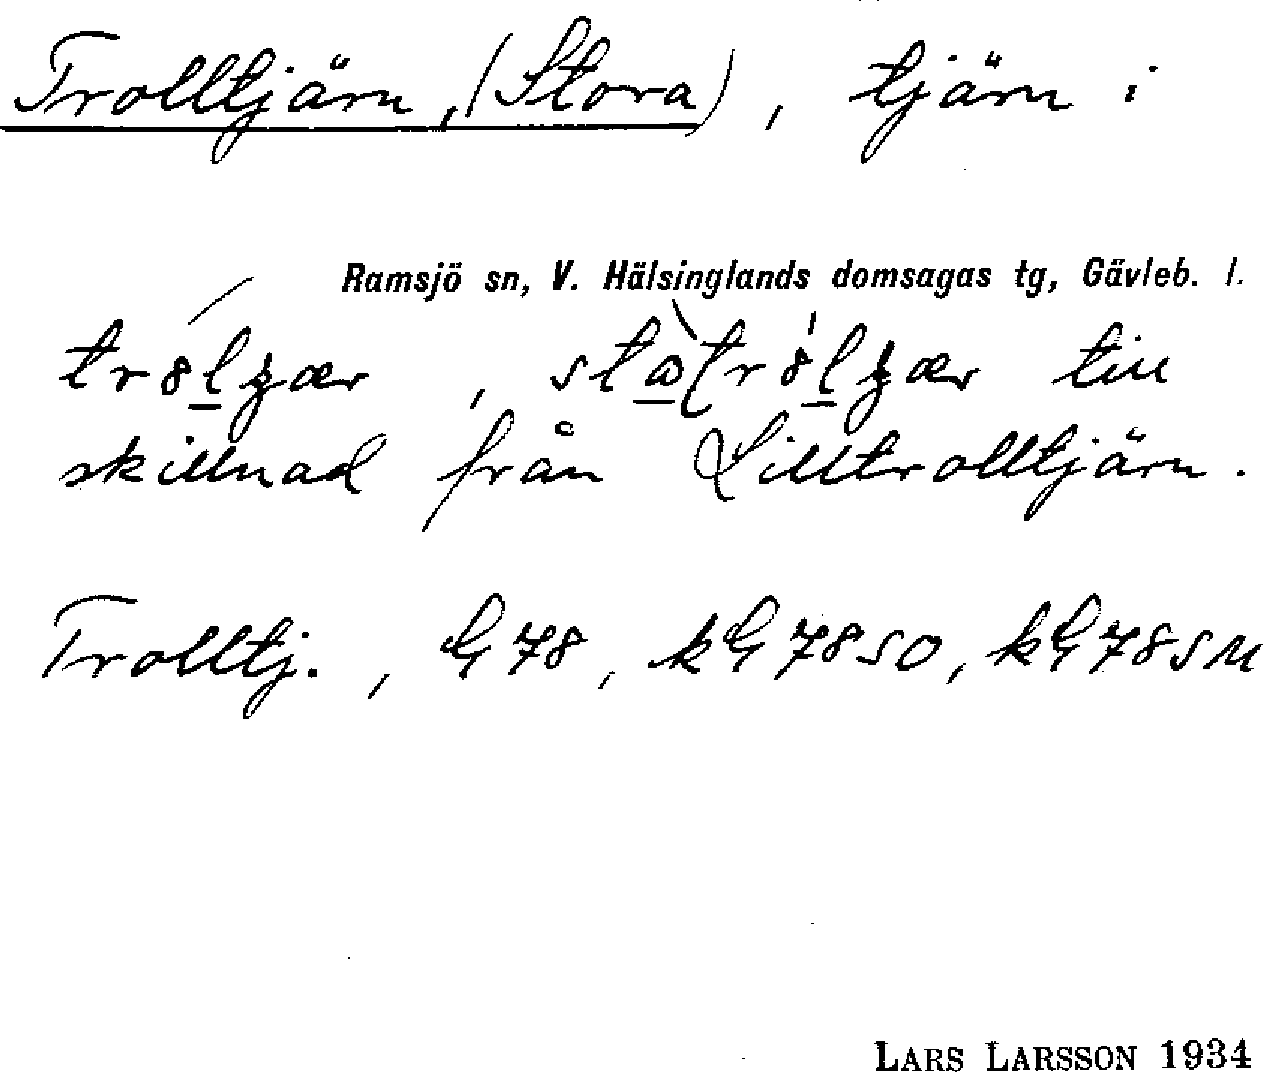 Trolltjärn, (Stora), tjärn i
Ramsjö sn, V. Hälsinglands domsagas tg, Gävleb. l.
till
skillnad från Lilltrolltjärn.
Trolltj., G 78, kG 78 SO, kG 78 SU
LARS LARSSON 1934